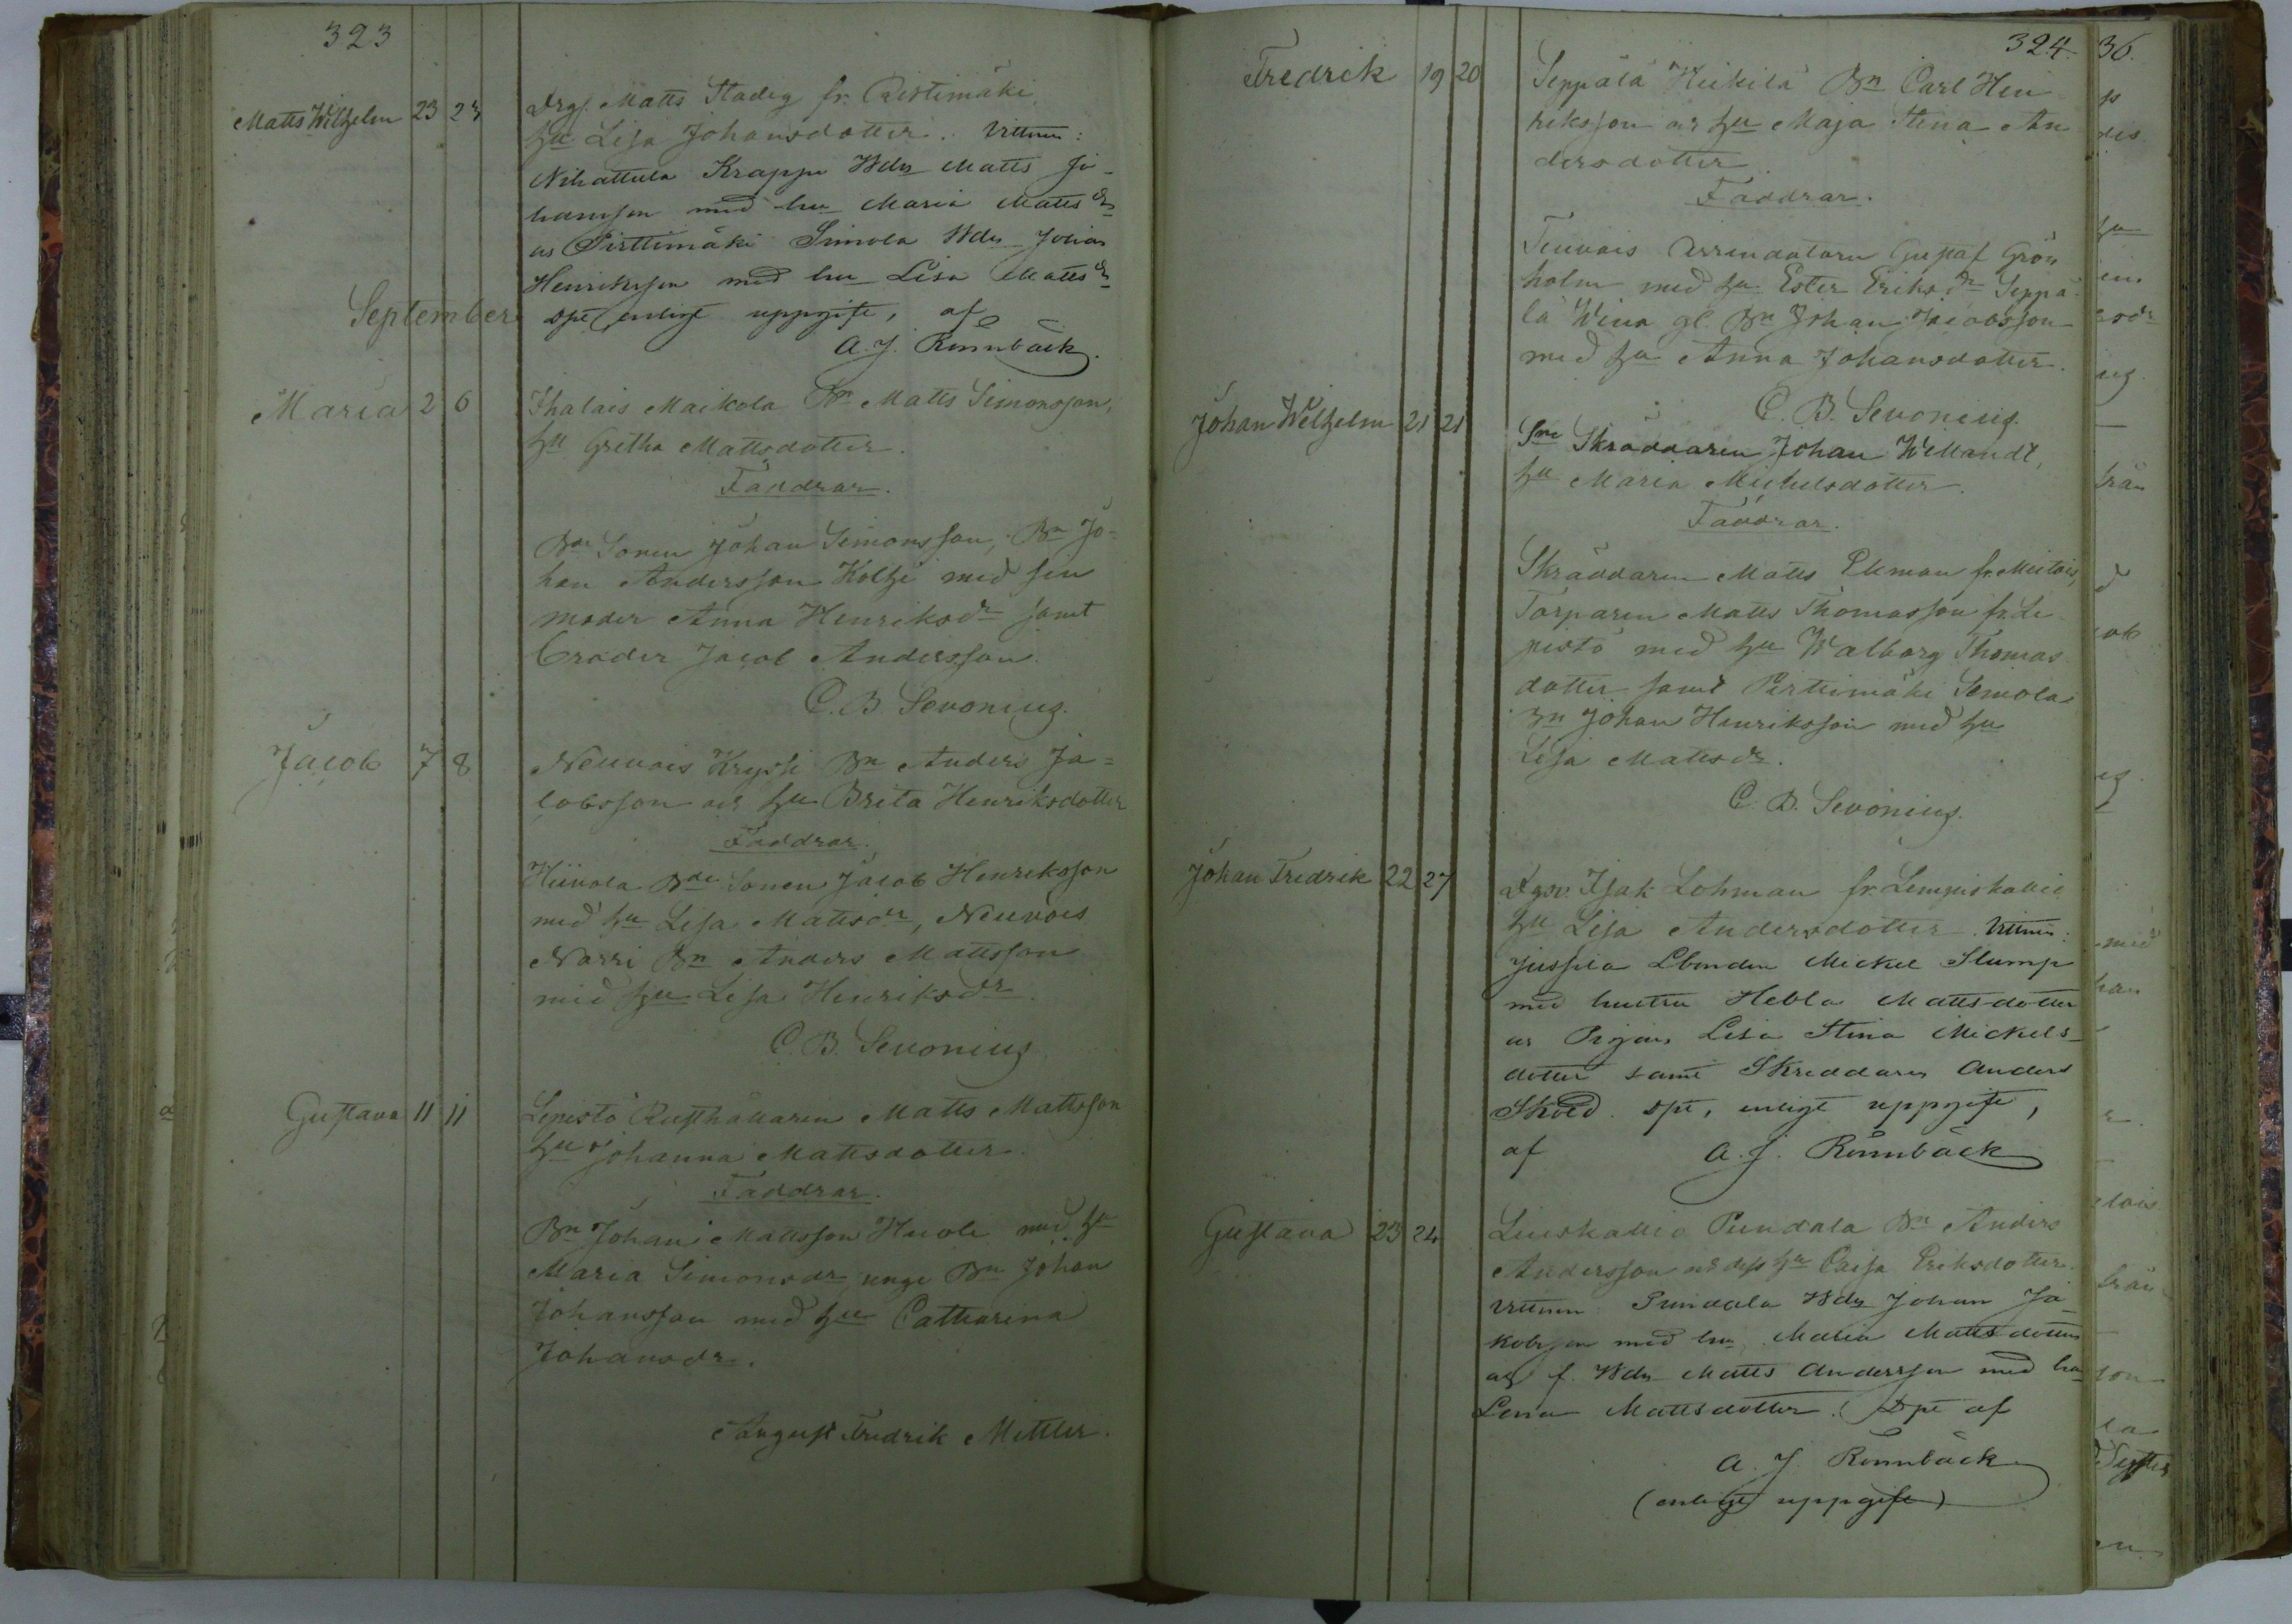 323
Matts Wilhelm 23 23 Drgn Matts Stadig fr. Ristimäki
hu Lisa Johansdotter. Vittnen:
Nihattula Krappu Bdn Matts Jo-
hansson med hu Maria Matts dr
och Pirttimäki Simola Bdn Johan
Henriksson med hu Lisa Matts dr
September dpt enligt uppgift, af
A. J. Rönnbäck.
Maria 2 6 Ihalais Maikola Bn Matts Simonsson,
hu Gretha Mattsdotter.
Faddrar.
Bde Sonen Johan Simonsson, Bn Jo-
han Andersson Koltzi med sin
moder Anna Henriksdr samt
broder Jacob Andersson.
C. B. Sevonius.
Jacob 7 8 Neuvois Kryssi Bn Anders Ja=
cobsson och hu Brita Henriksdotter
Faddrar.
Hiivola Bde Sonen Jacob Henriksson
med hu Lisa Mattsdr, Neuvois
Narri Bn Anders Mattsson
med hu Lisa Henriksdr.
C. B. Sevonius
Gustava 11 11 Lepistö Rusthållaren Matts Mattsson
hu Johanna Mattsdotter.
Faddrar.
Bn Johan Mattsson Huoli med hu
Maria Simonsdr unge Bn Johan
Johansson med hu Catharina
Johansdr.
August Fredrik Mettler.
324
Fredrik 19 20 Seppälä Heikilä Bn Carl Hen
riksson och hu Maja Stina An
dersdotter
Faddrar.
Teuvais Arrendatorn Gustaf Grön
holm med hu Ester Eriksdr Seppä
lä Wina gl. Bn Johan Jacobsson
med hu Anna Johansdotter.
C. B. Sevonius.
Johan Wilhelm 21 21 Sne Skräddaren Johan Willandt,
hu Maria Michelsdotter.
Faddrar.
Skräddaren Matts Ekman fr. Mietois,
Torparen Matts Thomasson fr. Le
pistö med hu Walborg Thomas
dotter samt Pirttimäki Simola
Bn Johan Henriksson med hu
Lisa Mattsdr.
C. B. Sevonius.
Johan Fredrik 22 27 Drgn Isak Lohman fr. Lempiskallio
hu Lisa Andersdotter. Vittnen:
Jussila Lbonden Mickel Slump
med hustru Hebla Mattsdotter
och Pigan Lisa Stina Mickels-
dotter samt Skreddaren Anders
Sköld. dpt, enligt uppgift,
af A. J. Rönnbäck
Gustava 23 24 Linskallio Pundala Bn Anders
Andersson och dess hu Caisa Eriksdotter.
Vittnen: Pundala Bdn Johan Ja-
kobsson med hu Maria Mattsdotter
och f. Bdn Matts Andersson med hu
Lena Mattsdotter. Dpt af
A. J. Rönnbäck
(enligt uppgift)
36.